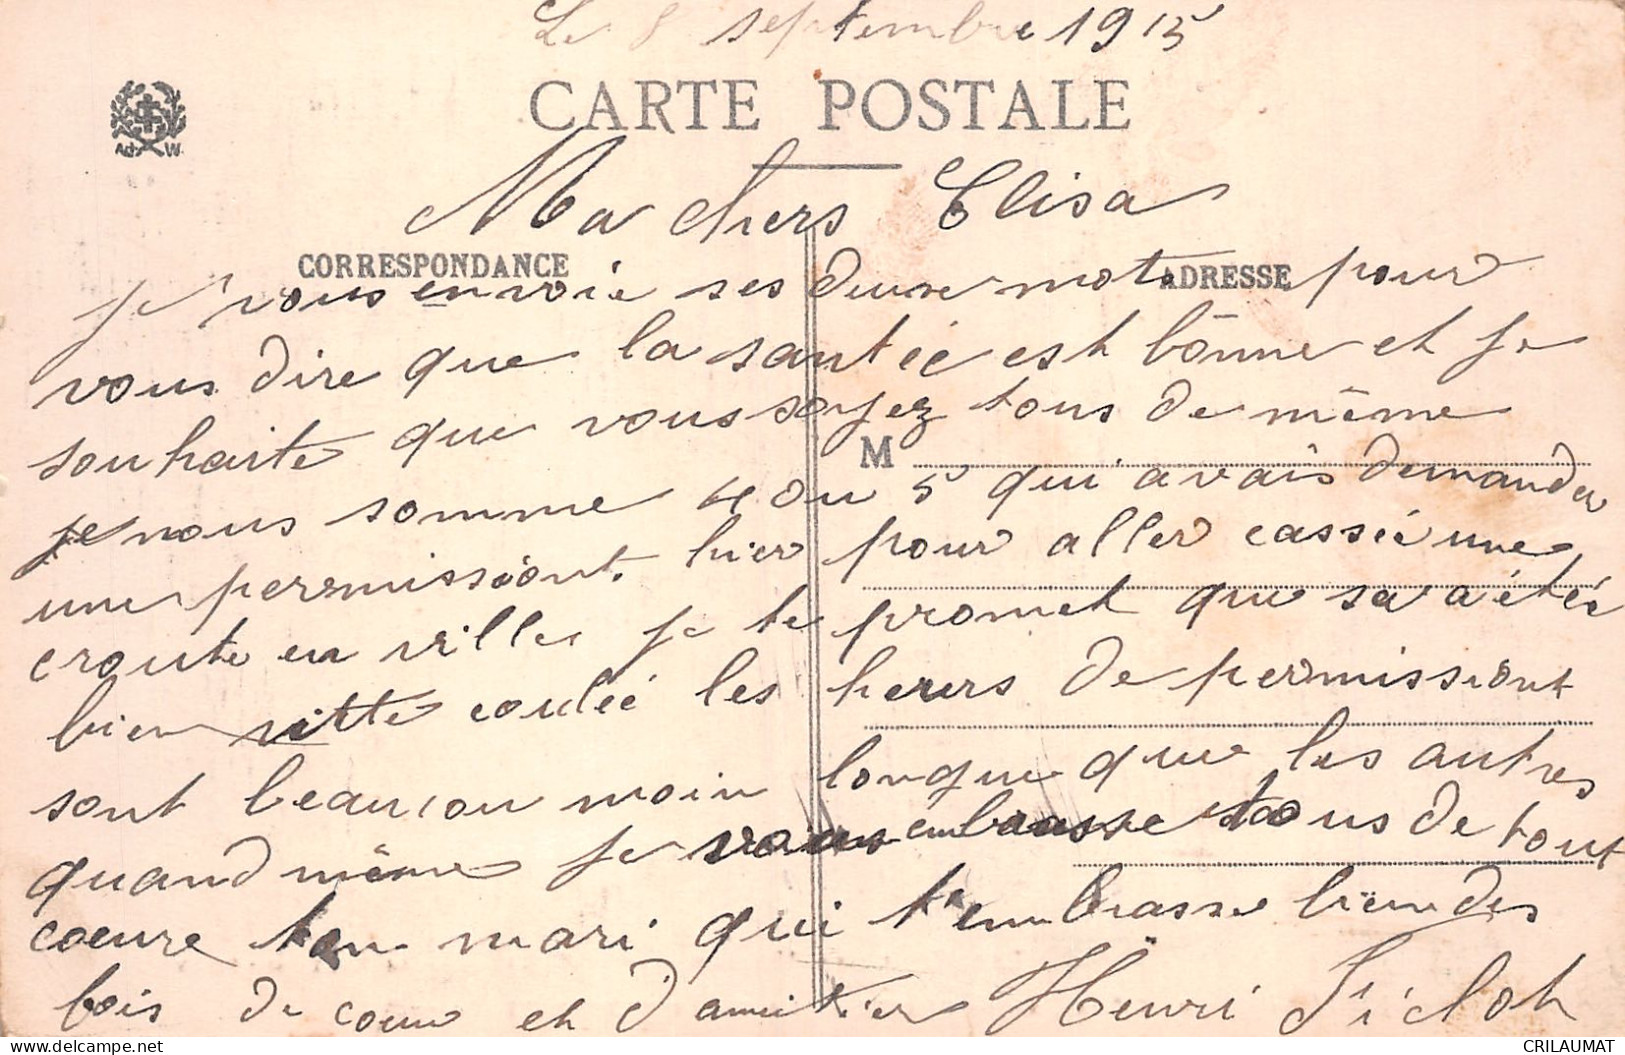 Le 8 septembre 1915
CARTE POSTALE
Ad. W.
Ma chers Elisa
CORRESPONDANCE
ADRESSE
je vous envoie ses deuxe mots pour
vous dire que la santée est bonne et je
souhaite que vous soyez tous de même
M
je nous somme 4 ou 5 qui avais demander
une permissiont hier pour aller cassée une
croute en ville je te promet que sa a étée
bien vitte coulée les heurs de permissiont
sont beaucou moin longue que les autres
quand même je vous embrasse tous de tout
coeure ton mari qui t'embrasse bien des
bois de coeur et d'amitier Henri
CRILAUMAT